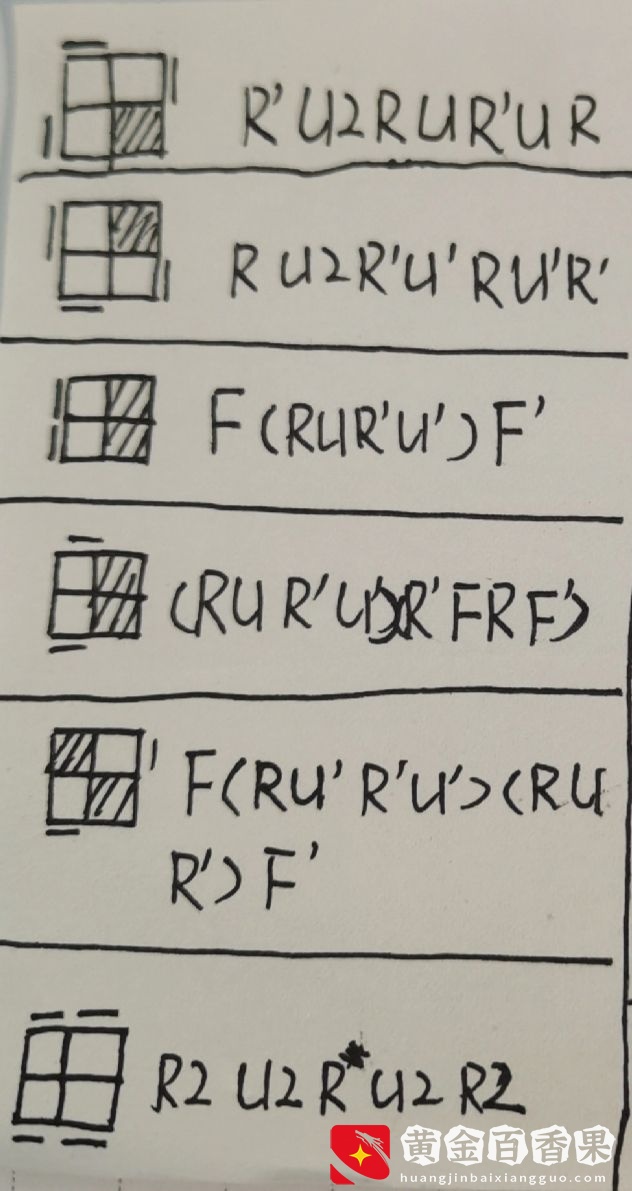 R'U2RUR'UR
RU2R'U'RU'R'
F(RUR'U')F'
(RUR'U')(R'FRF')
F(RU'R'U')(RU
R')F'
R2U2RU2R2
黄金百香果
huangjinbaixiangguo.com